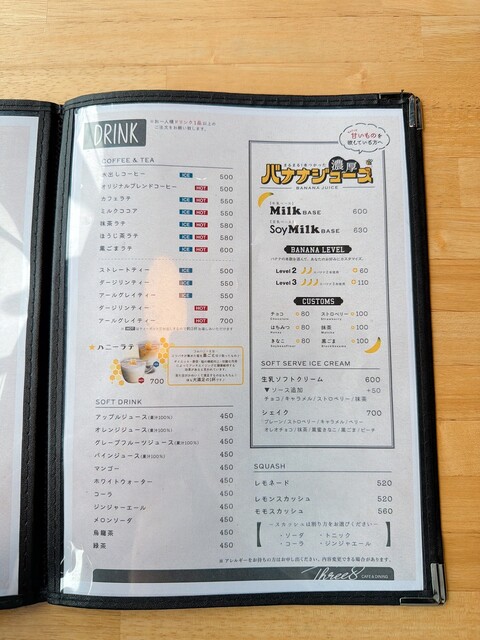 DRINK
※お一人様ドリンク1品以上の
ご注文をお願い致します。
COFFEE & TEA
水出しコーヒー ICE 500
オリジナルブレンドコーヒー HOT 500
カフェラテ ICE HOT 550
ミルクココア ICE HOT 550
抹茶ラテ ICE HOT 580
ほうじ茶ラテ ICE HOT 580
黒ごまラテ ICE HOT 600
ストレートティー ICE 500
ダージリンティー ICE 550
アールグレイティー ICE 550
ダージリンティー HOT 700
アールグレイティー HOT 700
ハニーラテ
700
SOFT DRINK
アップルジュース(果汁100%) 450
オレンジジュース(果汁100%) 450
グレープフルーツジュース(果汁100%) 450
パインジュース(果汁100%) 450
マンゴー 450
ホワイトウォーター 450
コーラ 450
ジンジャーエール 450
メロンソーダ 450
烏龍茶 450
緑茶 450
甘いものを
欲している方へ
濃厚
バナナジュース
BANANA JUICE
Milk BASE 600
Soy Milk BASE 630
BANANA LEVEL
Level 2 60
Level 3 110
CUSTOMS
チョコ 80 ストロベリー 100
はちみつ 80 抹茶 100
きなこ 80 黒ごま 100
SOFT SERVE ICE CREAM
生乳ソフトクリーム 600
▼ソース追加 +50
チョコ/キャラメル/ストロベリー/抹茶
シェイク 700
プレーン/ストロベリー/キャラメル/ベリー
オレオチョコ/抹茶/黒蜜きなこ/黒ごま/ピーチ
SQUASH
レモネード 520
レモンスカッシュ 520
モモスカッシュ 560
－スカッシュは割り方をお選びください－
・ソーダ ・トニック
・コーラ ・ジンジャエール
※アレルギーをお持ちの方はお申し出ください。内容変更できる場合があります。
Three8 CAFE & DINING